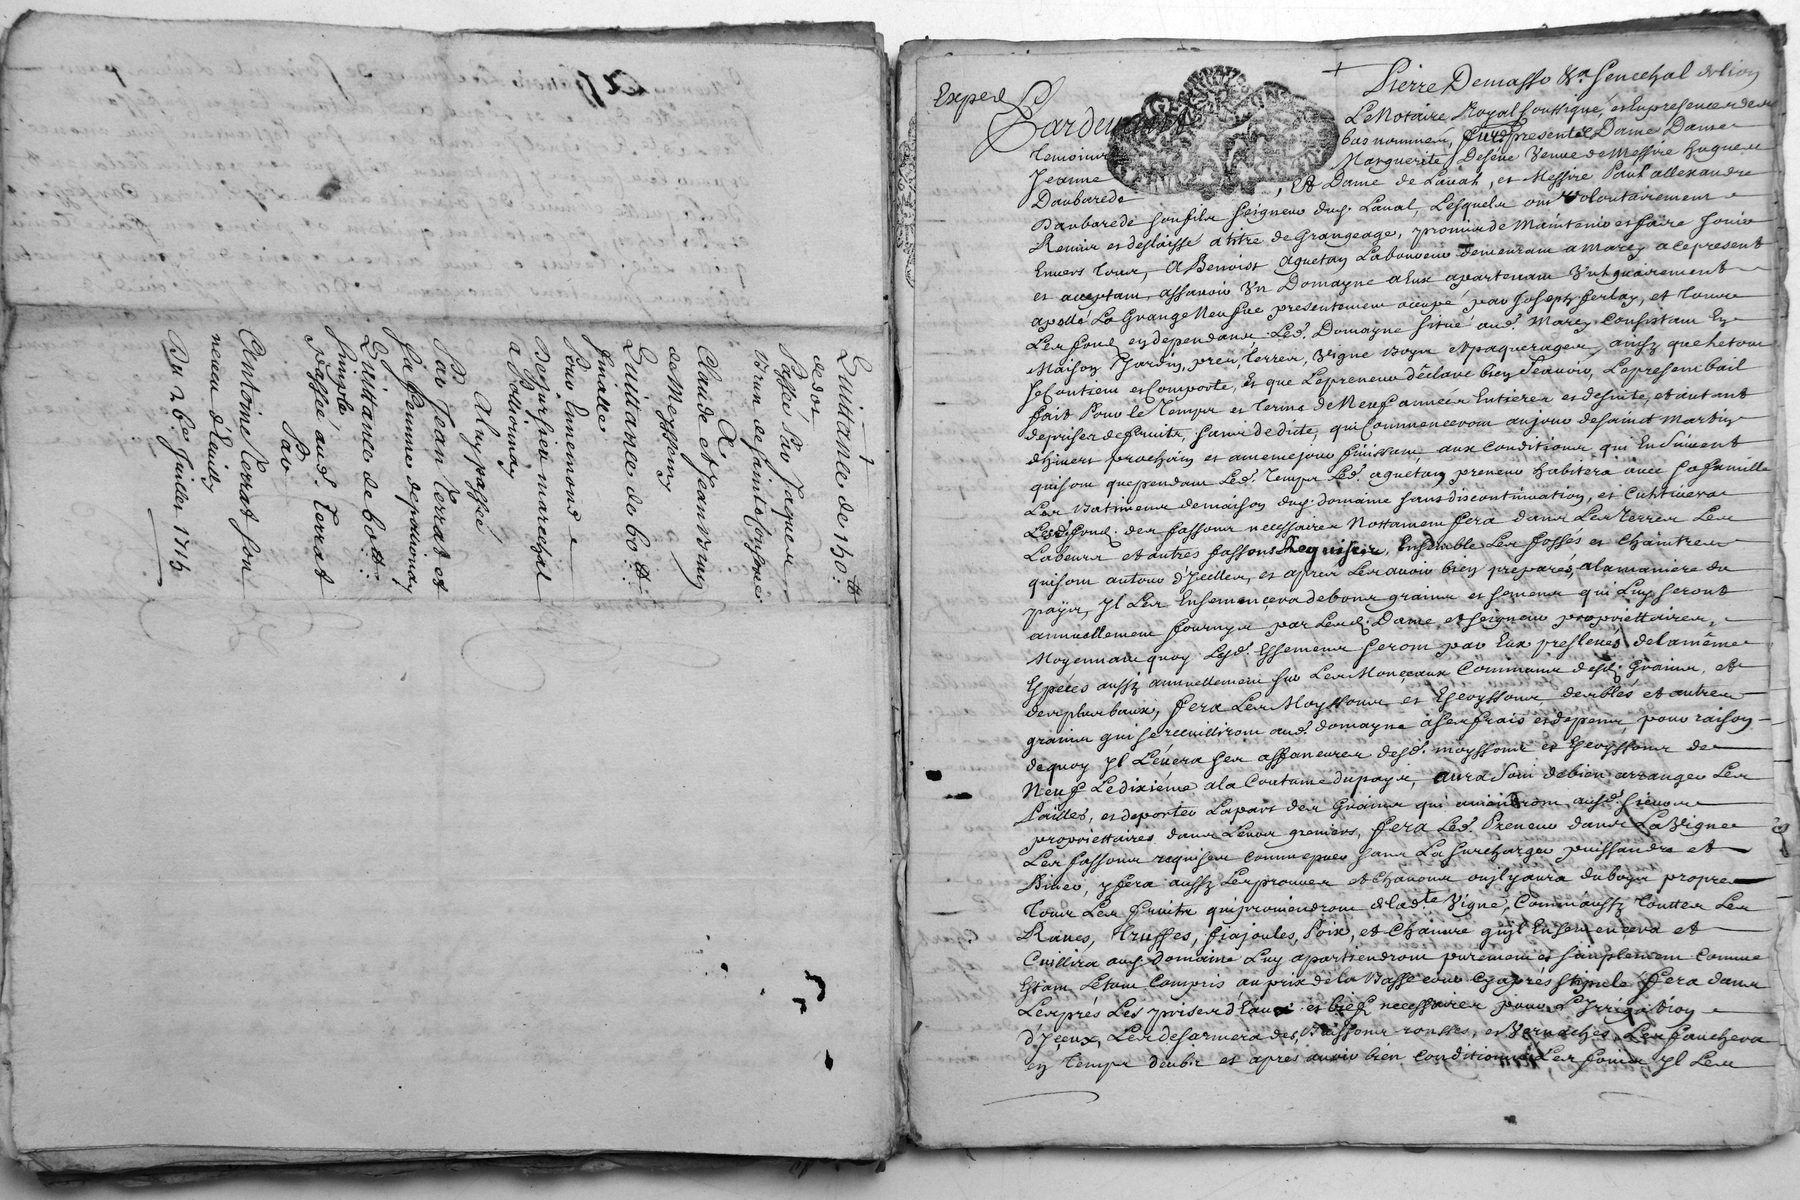 Quittance de 150:tt
de dot
Passée par Jaques
Brun de Sainte Consorce
A
Claude et Jean Brun
de Messemy
Quittance de 60:tt:
finalle
Pour Ennemond
Desjurfier marechal
a Pollionnay
A luy passée
Par Jean Terrat et
sa femme de pollionnay
Quittance de 60:tt:
simple
passée aud. Terrat
Par
Antoine Terrat son
neveu d'Eculy
Du 26e Juillet 1715
Exped
Par devant
Pierre Demasso &a Senechal de Lion
Le Notaire Royal soussigné, et en presence des
temoins bas nommés, furent presents Dame
Jeanne Marguerite Deseve Veuve de Messire hugues
Daubarede, Et Dame de Laval, et Messire Paul allexandre
Daubarede son fils seigneur dud. Laval, Lesquels ont volontairement
Remis et deslaissé a titre de Grangeage, promis de Maintenir et faire Jouir
Envers tous, A Benoist aguetan Laboureur demeurant a Marcy a ce present
et acceptant, assavoir Un Domayne a Eux apartenant Vulguairement
apellé La Grange Neufve presentement occupé par Joseph ferlay, et tous
Les fond en dependans Led. Domayne situé aud. Marcy Consistant En
Maison Jhardin, prez, Terres, Vigne Boys et paquerages, ainsy que le tout
se Contient et Comporte, Et que Le preneur declare bien scavoir, Le present bail
fait Pour le Temps et terme de Neuf années Entieres et desuite, et autant
de prises de fruits, sans dedite, qui Commenceront au jour de saint Martin
d'hivert prochain et a meme jour finissant, aux Conditions qui En suivent
qui sont que pendant Led. Temps Led. aguetan preneur habitera avec sa famille
Les Batiments de maison dud. domaine sans discontinuation, et Cultivera
Led. fond. des fassons necessaires Nottament fera dans Les Terres Les
Labeurs et autres fassons Requises, Ensemble Les fosses et Chaintres
qui sont autour d'Icelles, et apres Les avoir bien preparés, a la maniere du
pays, Yl Les Ensemencera de bons grains et semens qui Luy seront
annuellement fournys par Lesd. Dame, et seigneur propriettaires,
Moyennant quoy Lesd. Essemens seront par Eux preslevés de la même
Espéces aussy annuellement sur Les Monceaux Communs desd. Grains, Et
des plus baux, fera Les Moyssons et Escoyssons des bles et autres
grains qui se recuilliront aud. domayne a ses frais et depens, pour raison
de quoy Yl Lévera ses affaneures desd. moyssons et Escoyssons de
Neuf Le dixiéme a la Coutume du pays, aura soin de bien arranger Les
Pailles, et de porter La part des Grains qui aviendront ausd. sieurs
propriettaires dans Leurs greniers, fera Led. Preneur dans La Vigne
Les fassons requises comme puer sans La surcharger puissandre et
Biner, y fera aussy Les prouves et Chanons ou il y aura du boys propre
Tous Les fruits qui proviendront de lad.te Vigne, Comm'aussy Toutes Les
Raves, Truffes, fiajoules, Poix, et Chanvre qu'yl Ensemencera et
Cuillira aud. Domaine Luy apartiendront purement et simplement Comme
Estant Le tout Compris au prix de la Basse cour cy apres stipulé fera dans
Les prés Les prises d'Eaux et biefs necessaires pour L'irrigation
d'Iceux, Les desarmera des Buissons ronces, et Vernaches, Les fauchera
en Temps deubt et apres avoir bien conditionné Les foins Yl Les